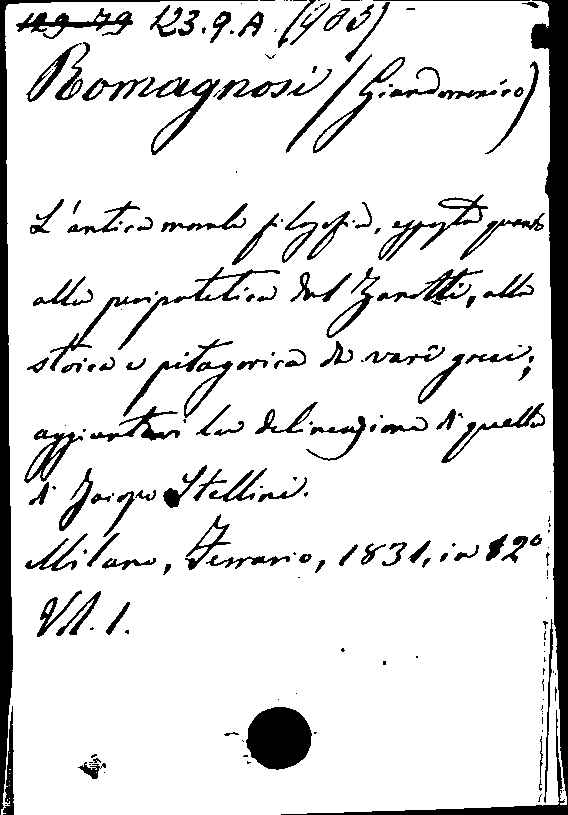 123.9.A. (903)
Romagnosi (Giandomenico)
L'antica morale filozofia, esposta quanto
alla peripatetica dal Zanotti, alla
stoica e pitagorica da varî greci;
aggiuntavi la delineazione di quella
di Jacopo Stellini.
Milano, Ferrario, 1831, in 12°
Vol. 1.